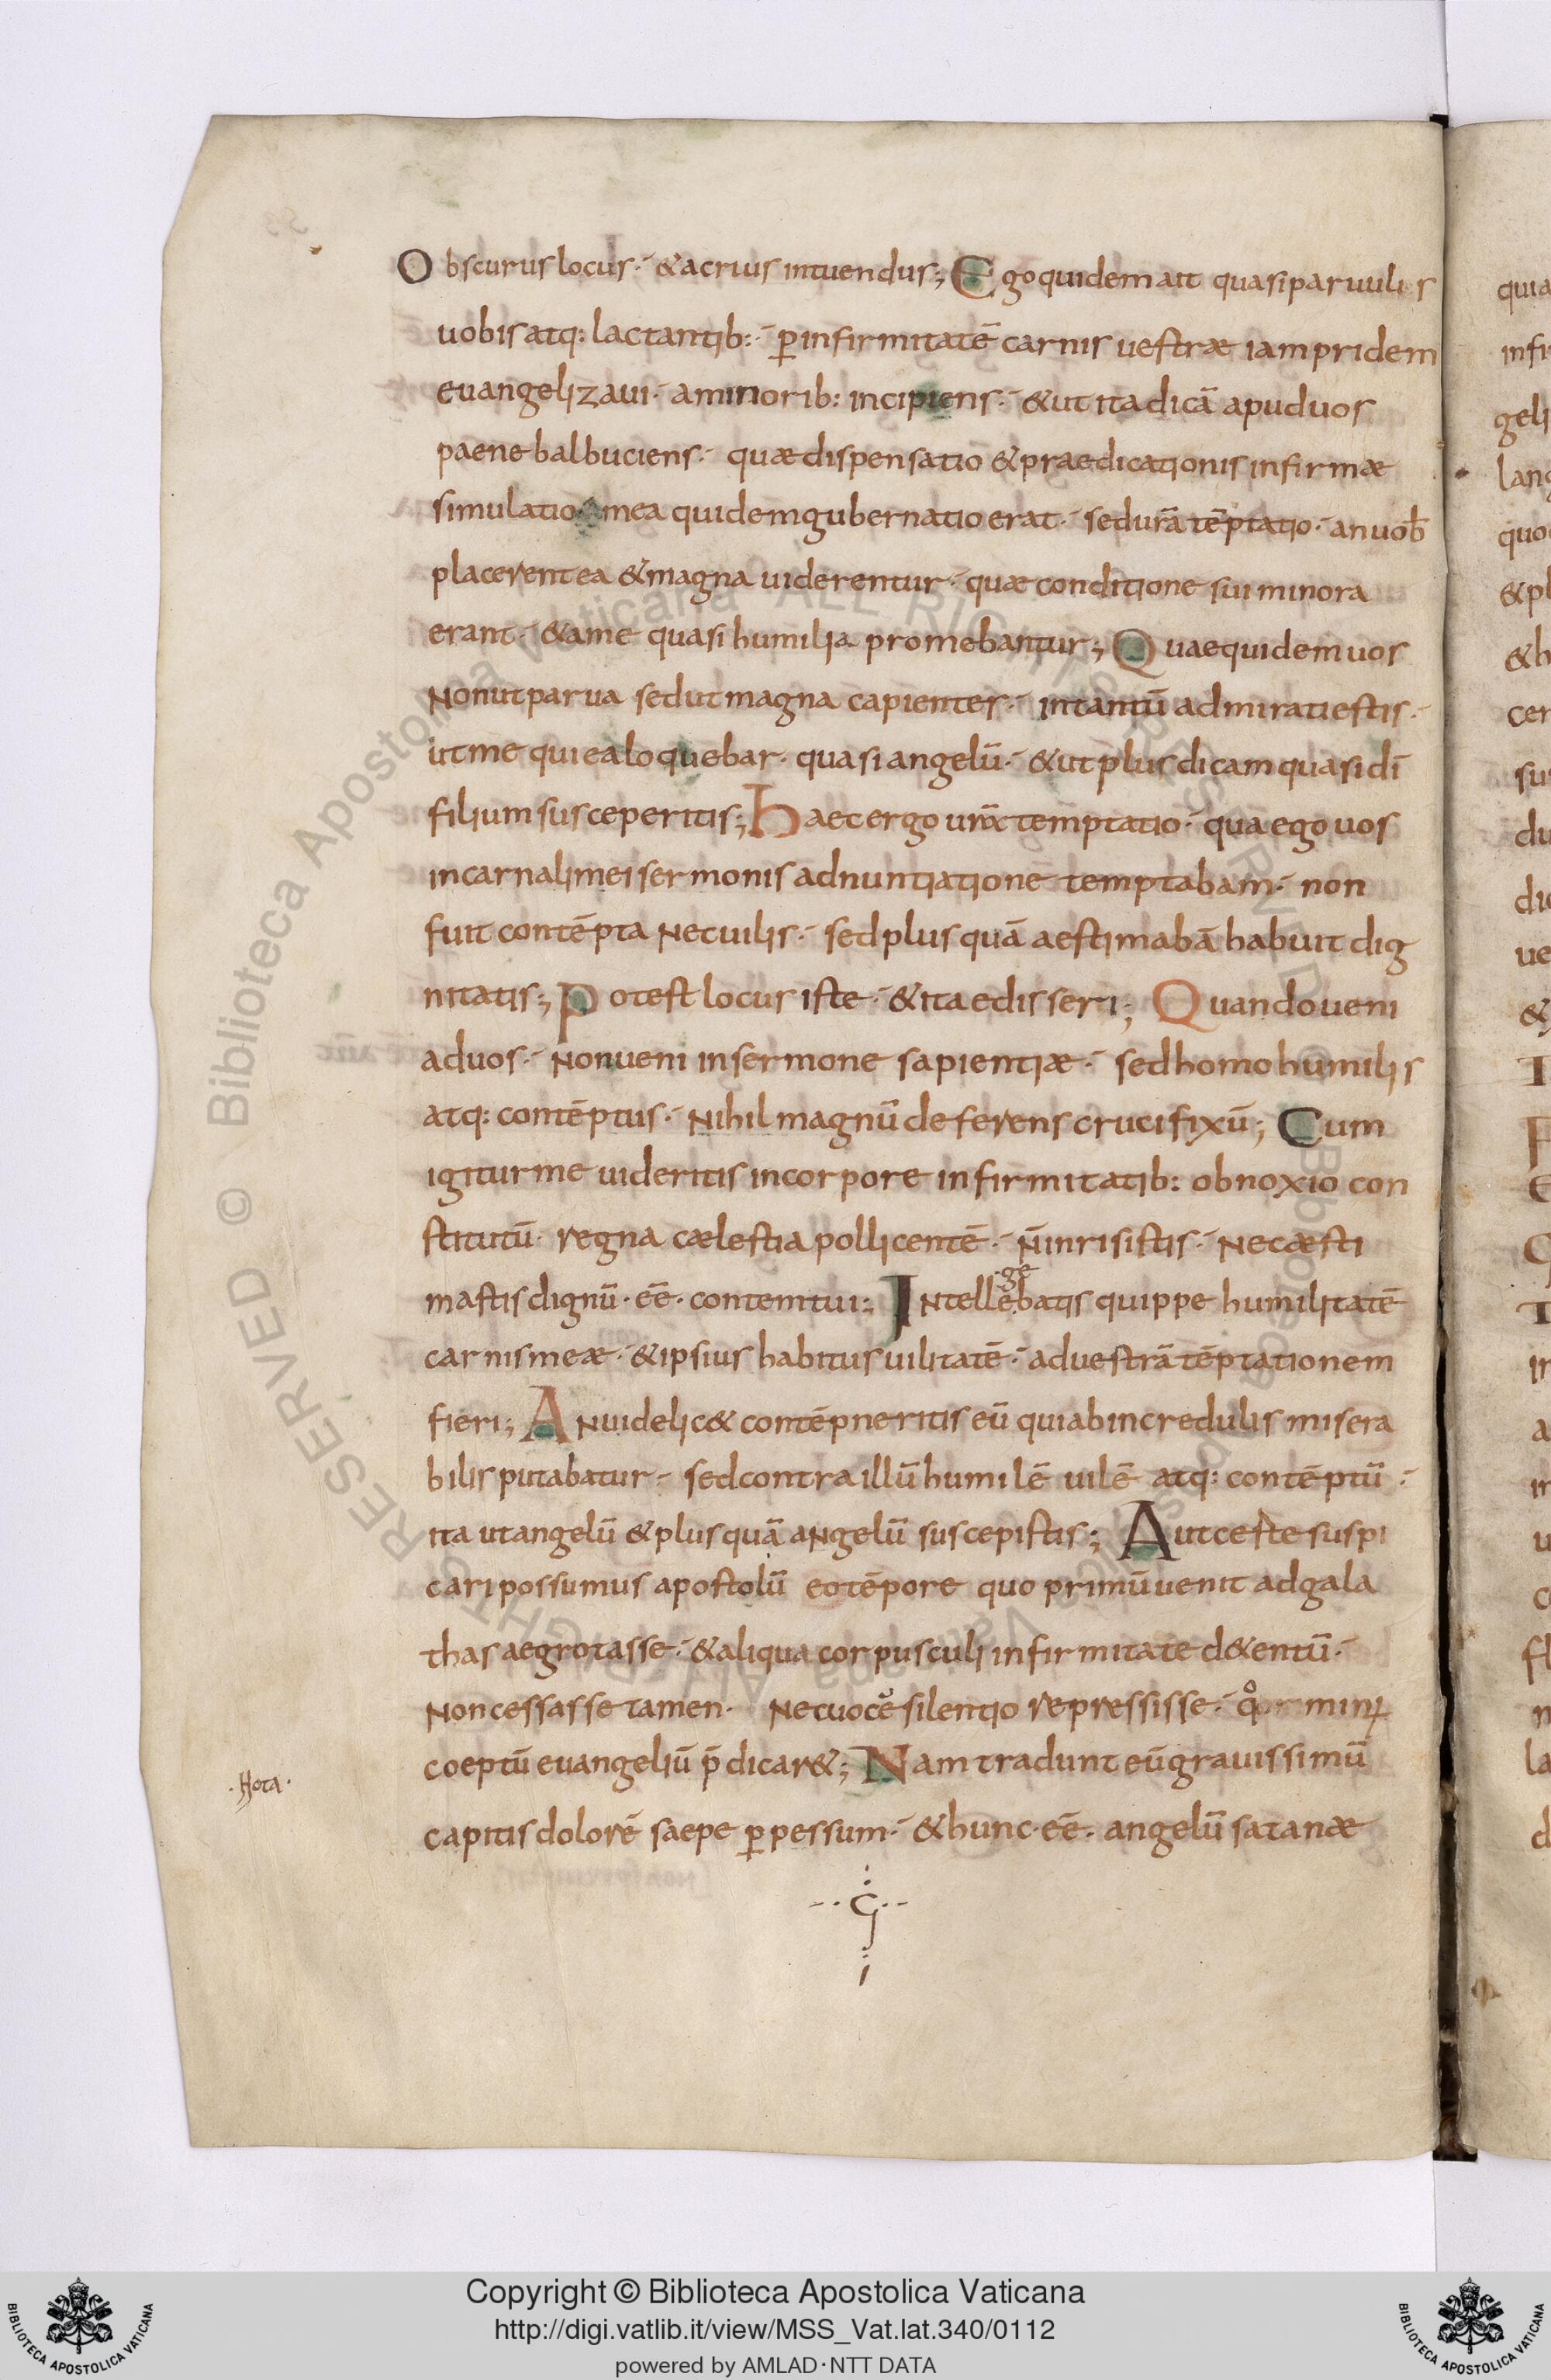 Obscurus locus·́ & acrius intuendus; Ego quidem ait quasi paruulis
uobis atq: lactantib:·́ ꝑ infirmitatē carnis uestræ iampridem
euangelizaui· a minorib: incipiens·́ & ut ita dicā apud uos
paene balbuciens·́ quæ dispensatio & praedicationis infirmæ
simulatio mea quidem gubernatio erat·́ sed ur̄a tēptatio·́ an uob̄
placerent ea & magna uiderentur·́ quæ conditione sui minora
erant·́ & a me quasi humilia promebantur; Quae quidem uos
Non ut parua sed ut magna capientes·́ in tantū admirati estis·́
ut me qui ea loquebar· quasi angelū·́ & ut plus dicam quasi dī
filium susceperitis; haec ergo ur̄a temptatio·́ qua ego uos
in carnali mei sermonis adnuntiatione temptabam·́ non
fuit contēpta Nec uilis·́ sed plus quā aestimabā habuit dig
nitatis; Potest locus iste·́ & ita edisseri; Quando ueni
ad uos·́ Non ueni in sermone sapientiæ·́ sed homo humilis
atq: contēptus·́ Nihil magnū deferens crucifixū; Cum
igitur me uideritis in corpore infirmitatib: obnoxio con
stitutū· regna cælestia pollicentē·́ n̄ inrisistis·́ Nec æsti
mastis dignū· eē· contemtui; INtellebatis quippe humilitatē
ge
carnis meæ·́ & ipsius habitus uilitatē·́ ad uestrā tēptationem
fieri; AN uidelic& contēpneritis eū qui ab incredulis misera
bilis putabatur·́ sed contra illū humilē uilē atq: contēptū·́
ita ut angelū & plus quā aNgelū suscepistis; Aut certe suspi
cari possumus apostolū eo tēpore quo primū uenit ad gala
thas aegrotasse·́ & aliqua corpusculi infirmitate d&entū·́
Non cessasse tamen· Nec uocē silentio repressisse·́ min
coeptū euangeliū p̄dicar&; Nam tradunt eū grauissimū
·Nota·
capitis dolorē saepe ꝑpessum·́ & hunc· eē· angelū satanæ
Copyright © Biblioteca Apostolica Vaticana
http://digi.vatlib.it/view/MSS_Vat.lat.340/0112
powered by AMLAD·NTT DATA
BIBLIOTECA APOSTOLICA VATICANA
BIBLIOTECA APOSTOLICA VATICANA